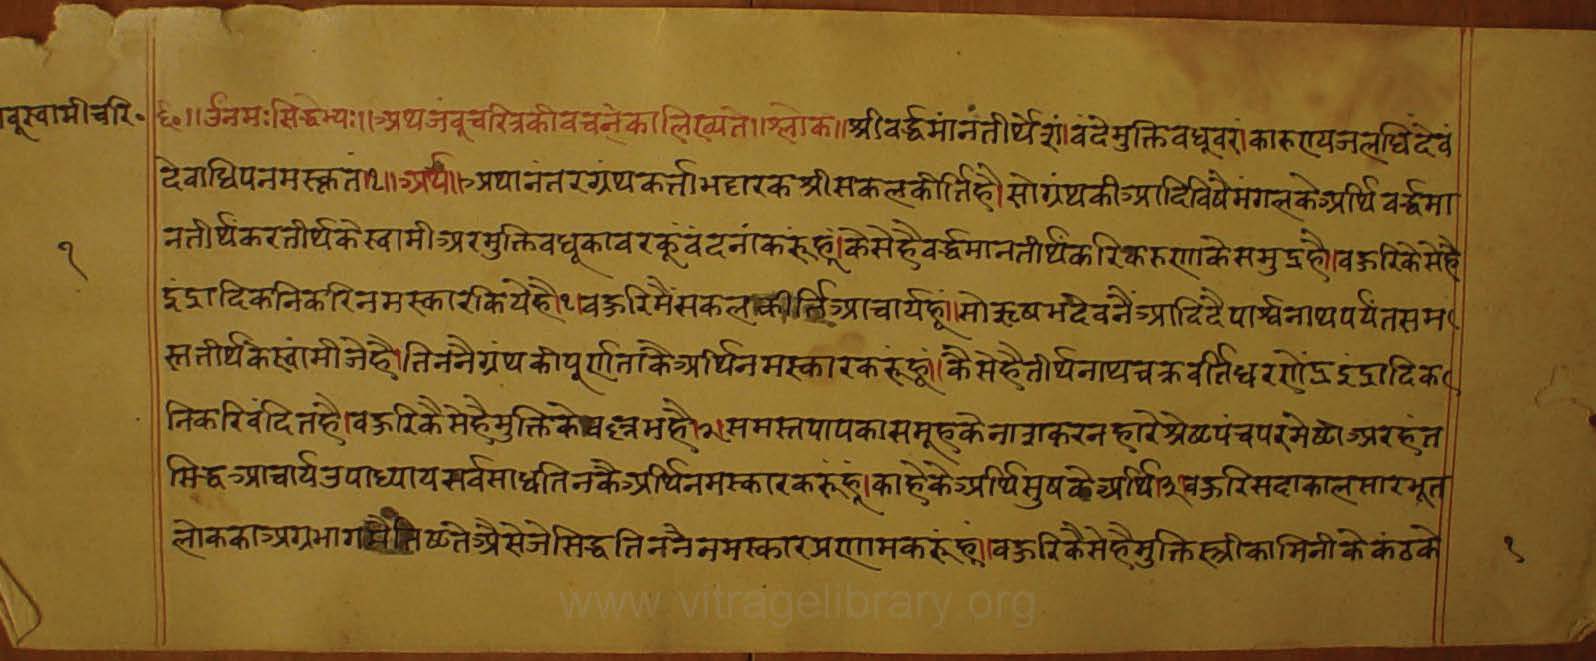 जंबूस्वामीचरि॰
६०॥ उँनमःसिद्धेभ्यः॥ अथजंबूचरित्रकीवचनेकालिख्यते॥श्लोक॥ श्रीवर्द्धमांनंतीर्थेशं।वंदेमुक्तिवधूवरं।कारुण्यजलधिंदेवं
देवाधिपनमस्कृतं॥१॥अर्थ॥अथानंतरग्रंथकर्त्ताभट्टारकश्रीसकलकीर्तिहै।सोग्रंथकीआदिविषैमंगलकेअर्थिवर्द्धमा
नतीर्थंकरतीर्थकेस्वामीअरमुक्तिवधूकावरकूंवंदनांकरूंहूं।कैसेहैवर्द्धमानतीर्थंकरिकरुणाकेसमुद्रहै।वऊरिकेसेहै
१
इंद्रादिकनिकरिनमस्कारकियेहै।१।वऊरिमैंसकलकीर्त्तिआचार्यहूं।सोऋषभदेवनैंआदिदैपार्श्वनाथपर्यंतसम
स्ततीर्थकेस्वांमीजेहै।तिननैग्रंथकीपूर्णताकैअर्थिनमस्कारकरूंहूं।कैसेहैतीर्थनाथचक्रवर्तिधरणेंद्रइंद्रादिक
निकरिवंदितहै।वऊरिकैसेहैमुक्तिकेवल्लभहै।२।समस्तपापकासमूहकेनाशकरनहारेश्रेष्टपंचपरमेष्टीअरहंत
सिद्धआचार्यउपाध्यायसर्वसाधतिनकैअर्थिनमस्कारकरूंहूं।काहेकेअर्थिसुषकेअर्थि।३।वऊरिसदाकालसारभूत
लोककाअग्रभागमैतिष्टतेऐसेजेसिद्धतिननैनमस्कारप्रणामकरूंहूं।वऊरिकैसेहैमुक्तिस्त्रीकामिनीकेकंठको
१
www.vitragelibrary.org